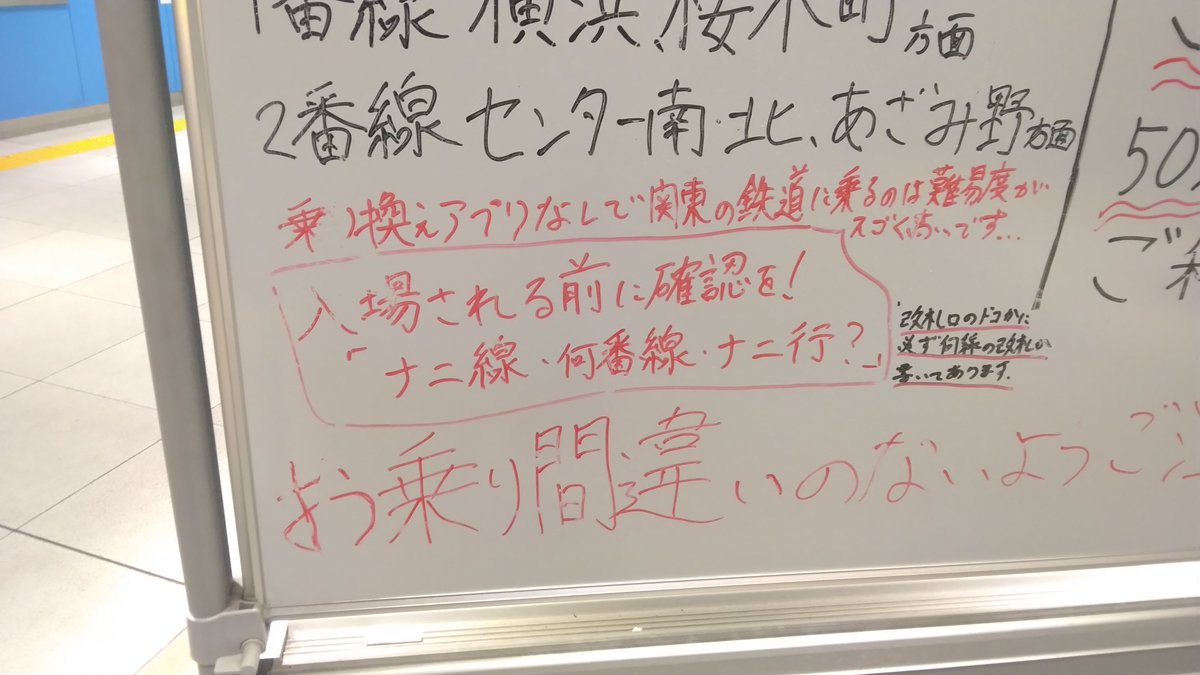 1番線 横浜、桜木町方面
2番線 センター南・北、あざみ野方面
乗り換えアプリなしで関東の鉄道に乗るのは難易度が
スゴく高いです…
入場される前に確認を!
「ナニ線・何番線・ナニ行?」
改札口のドコかに
必ず何線の改札か
書いてあります。
お乗り間違いのないようご注
50
ご利